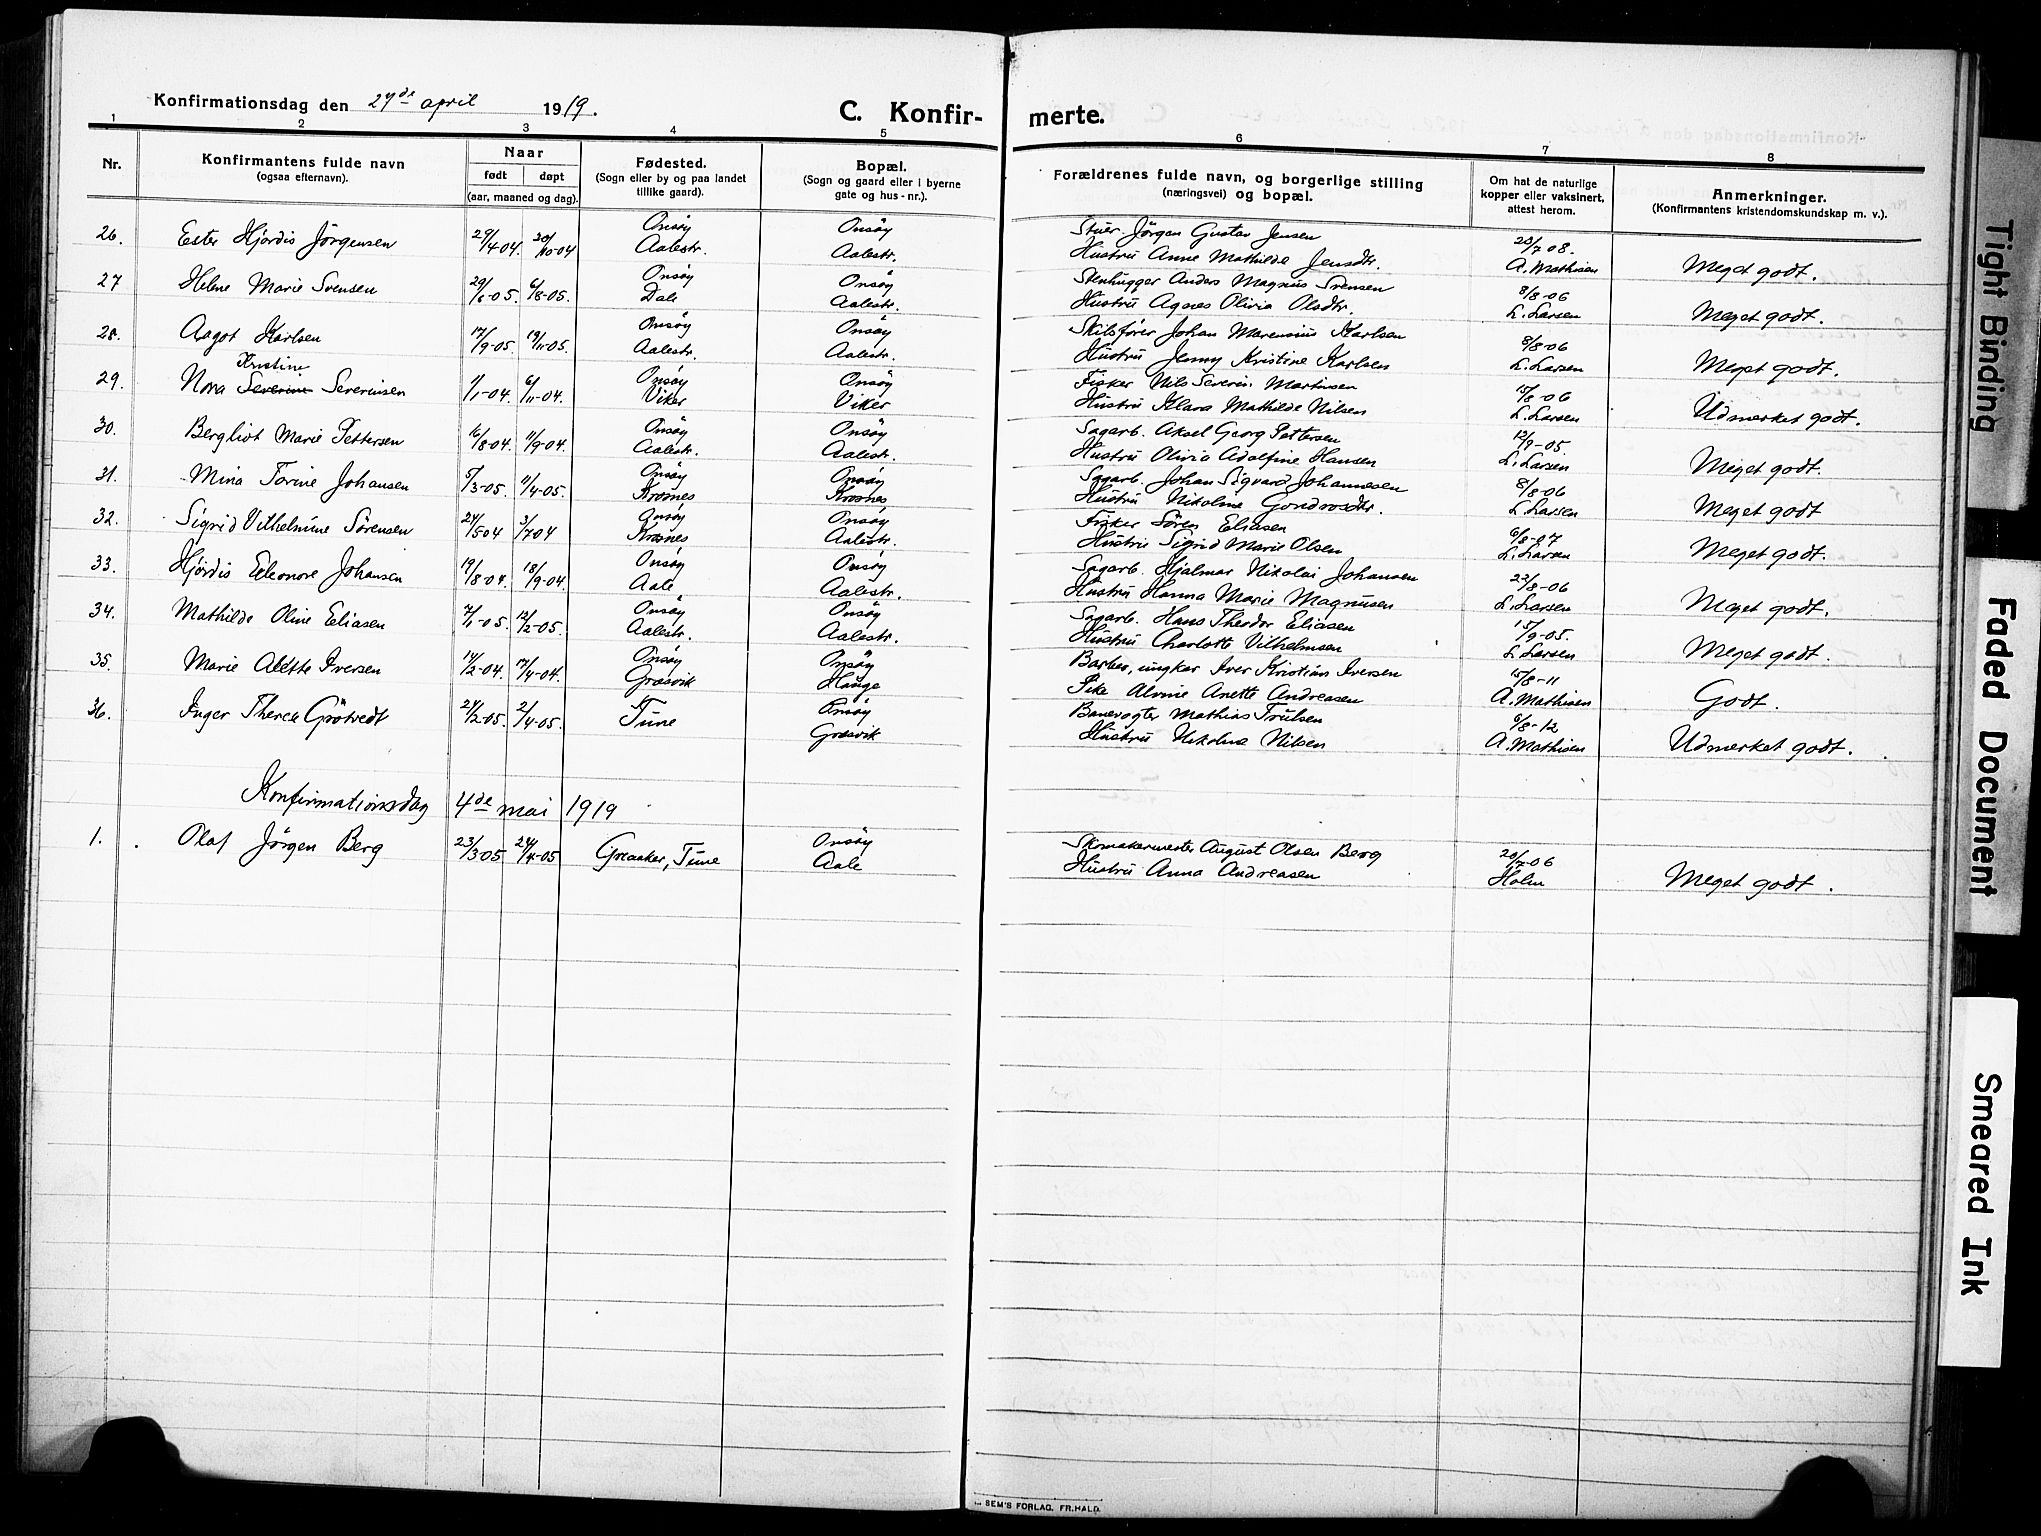 Konfirmationsdag den 27de april 1919.
C. Konfirmerte.
1 2 3 4 5 6 7 8
Nr.
Konfirmantens fulde navn
(ogsaa efternavn).
Naar
født døpt
(aar, maaned og dag).
Fødested.
(Sogn eller by og paa landet
tillike gaard).
Bopæl.
(Sogn og gaard eller i byerne
gate og hus-nr.).
Forældrenes fulde navn, og borgerlige stilling
(næringsvei) og bopæl.
Om hat de naturlige
kopper eller vaksinert,
attest herom.
Anmerkninger.
(Konfirmantens kristendomskundskap m. v.).
26. Ester Hjørdis Jørgensen 29/4 04. 30/10-04 Onsøy Aalestr. Onsøy Aalestr. Jørgen Gustav Jensen
Hustru Anne Mathilde Jensdtr. 23/7 08. A. Mathisen Meget godt.
27 Helene Marie Svensen 29/6-05. 6/8-05. Onsøy Dale Onsøy Aalestr. Stenhugger Anders Magnus Svensen
Hustru Agnes Olivia Olsdtr. 8/8-06 L. Larsen Meget godt.
28. Aagot Karlsen 17/9-05. 19/11-05. Onsøy Aalestr. Onsøy Aalestr. Johan Marensius Karlsen
Hustru Jenny Kristine Karlsen 8/8-06 L. Larsen Meget godt.
Kristine
29. Nora Severine Severinsen 1/1-04. 6/11-04. Onsøy Viker Onsøy Viker Fisker Nils Severin Martinsen
Hustru Klara Mathilde Nilsen 15/8-06 L. Larsen Udmerket godt.
30. Bergliot Marie Pettersen 16/8-04. 11/9-04. Onsøy Aalestr. Onsøy Aalestr. Sagarb. Aksel Georg Pettersen
Hustru Olivia Adolfine Hansen 12/9-05. L. Larsen Meget godt.
31. Mina Torine Johansen 5/3-05. 11/4-05. Onsøy Krosnes Onsøy Krosnes Sagarb. Johan Sigvard Johannesen
Hustru Nikoline 8/8-06 L. Larsen Meget godt
32. Sigrid Vilhelmine Sørensen 24/5 04 3/7 04 Onsøy Krosnes Onsøy Aalestr. Fisker Søren Eliasen
Hustru Sigrid Marie Olsen 6/8-07 L. Larsen Meget godt.
33. Hjørdis Eleonore Johansen 19/8-04. 18/9-04. Onsøy Aale Onsøy Aalestr. Sagarb. Hjalmar Nikolai Johansen
Hustru Hanna Marie Magnusen 22/8-06 L. Larsen Meget godt.
34. Mathilde Oline Eliasen 7/1-05. 12/2-05. Onsøy Aalestr. Onsøy Aalestr. Sagarb. Hans Theodor Eliasen
Hustru Charlotte Vilhelmsen 15/9-05. L. Larsen Meget godt.
35. Marie Alette Iversen 14/2-04. 17/4-04. Onsøy Græsvik Onsøy Hauge Barber, ungkar Iver Kristian Iversen
Pike Alvine Anette Andreasen 15/8-11 A. Mathisen Godt.
36. Inger Therese Grötvedt 27/2-05. 2/4-05. Tune Onsøy Græsvik Banevogter Mathias Trulsen
Hustru Nikoline Nilsen 6/8-12 A. Mathisen Udmerket godt.
Konfirmationsdag 4de mai 1919
1. Olaf Jørgen Berg 23/3 05 24/4-05 Greaaker, Tune Onsøy Aale Skomakermester August Olsen Berg
Hustru Anna Andreasen 20/7-06 Holm Meget godt.
SEM'S FORLAG, FR.HALD.
Tight Binding
Faded Document
Smeared Ink